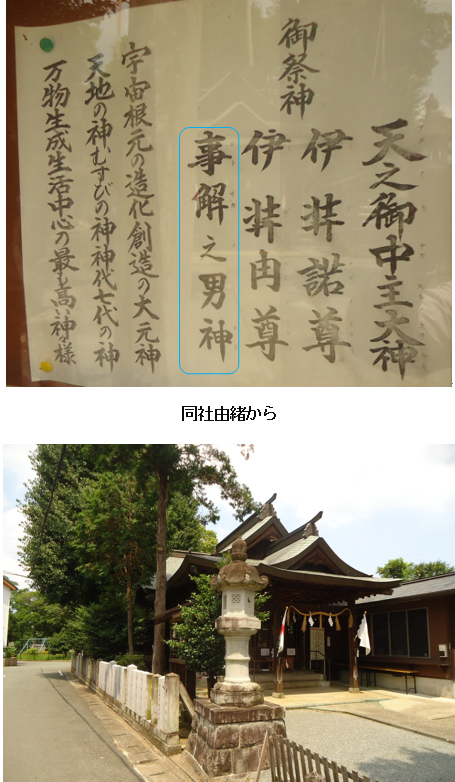 御祭神
天之御中主大神
伊弉諾尊
伊弉冉尊
事解之男神
宇宙根元の造化創造の大元神
天地の神むすびの神神代七代の神
万物生成生活中心の最も高い神々様
同社由緒から